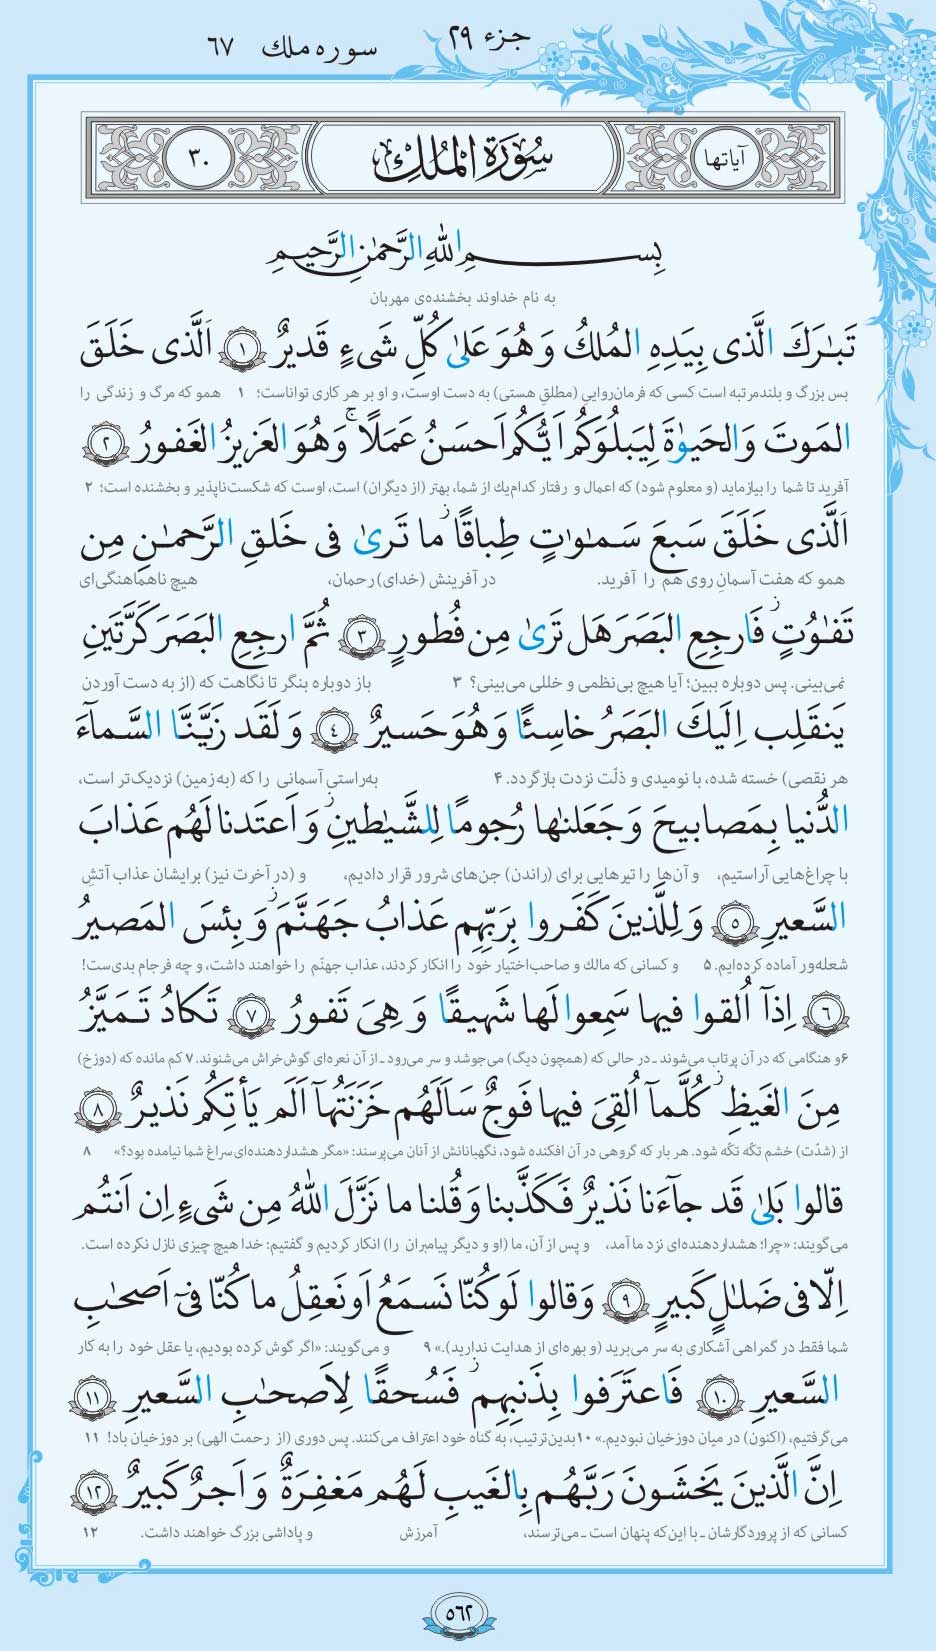 جزء ۲۹
سوره ملك ۶۷
آیاتها
سُورَةُ المُلكِ
۳۰
بِسمِ اللهِ الرَّحمٰنِ الرَّحیمِ
به نام خداوند بخشنده‌ی مهربان
تَبٰرَكَ الَّذی بِیَدِهِ المُلكُ وَ هُوَ عَلیٰ كُلِّ شَیءٍ قَدیرٌ ﴿۱﴾ اَلَّذی خَلَقَ
بس بزرگ و بلندمرتبه است کسی که فرمان‌روایی (مطلق هستی) به دست اوست، و او بر هر کاری تواناست؛ ۱ همو که مرگ و زندگی را
المَوتَ وَ الحَیوٰةَ لِیَبلُوَكُم اَیُّكُم اَحسَنُ عَمَلًا ۚ وَ هُوَ العَزیزُ الغَفورُ ﴿۲﴾
آفرید تا شما را بیازماید (و معلوم شود) که اعمال و رفتار کدام‌یك از شما، بهتر (از دیگران) است، اوست که شکست‌ناپذیر و بخشنده است؛ ۲
اَلَّذی خَلَقَ سَبعَ سَمٰوٰتٍ طِباقًا ز ما تَریٰ فی خَلقِ الرَّحمٰنِ مِن
همو که هفت آسمانِ روی هم را آفرید. در آفرینش (خدای) رحمان، هیچ ناهماهنگی‌ای
تَفٰوُتٍ ز فَارجِعِ البَصَرَ هَل تَریٰ مِن فُطورٍ ﴿۳﴾ ثُمَّ ارجِعِ البَصَرَ كَرَّتَینِ
نمی‌بینی. پس دوباره ببین؛ آیا هیچ بی‌نظمی و خللی می‌بینی؟ ۳ باز دوباره بنگر تا نگاهت که (از به دست آوردن
یَنقَلِب اِلَیكَ البَصَرُ خاسِئًا وَ هُوَ حَسیرٌ ﴿۴﴾ وَ لَقَد زَیَّنَّا السَّماۤءَ
هر نقصی) خسته شده، با نومیدی و ذلّت نزدت بازگردد. ۴ به‌راستی آسمانی را که (به‌زمین) نزدیک‌تر است،
الدُّنیا بِمَصابیحَ وَ جَعَلنٰها رُجومًا لِلشَّیٰطینِ ز وَ اَعتَدنا لَهُم عَذابَ
با چراغ‌هایی آراستیم، و آن‌ها را تیرهایی برای (راندن) جن‌های شرور قرار دادیم، و (در آخرت نیز) برایشان عذاب آتشِ
السَّعیرِ ﴿۵﴾ وَ لِلَّذینَ كَفَروا بِرَبِّهِم عَذابُ جَهَنَّمَ ز وَ بِئسَ المَصیرُ
شعله‌ور آماده کرده‌ایم. ۵ و کسانی که مالك و صاحب‌اختیار خود را انکار کردند، عذاب جهنّم را خواهند داشت، و چه فرجام بدی‌ست!
﴿۶﴾ اِذاۤ اُلقوا فیها سَمِعوا لَها شَهیقًا وَ هِیَ تَفورُ ﴿۷﴾ تَكادُ تَمَیَّزُ
۶ و هنگامی که در آن پرتاب می‌شوند ـ در حالی که (همچون دیگ) می‌جوشد و سر می‌رود ـ از آن نعره‌ای گوش‌خراش می‌شنوند. ۷ کم مانده که (دوزخ)
مِنَ الغَیظِ ز كُلَّماۤ اُلقِیَ فیها فَوجٌ سَاَلَهُم خَزَنَتُهاۤ اَلَم یَأتِكُم نَذیرٌ ﴿۸﴾
از (شدّت) خشم تکّه تکّه شود. هر بار که گروهی در آن افکنده شود، نگهبانانش از آنان می‌پرسند: «مگر هشداردهنده‌ای سراغ شما نیامده بود؟» ۸
قالوا بَلیٰ قَد جاۤءَنا نَذیرٌ فَكَذَّبنا وَ قُلنا ما نَزَّلَ اللهُ مِن شَیءٍ اِن اَنتُم
می‌گویند: «چرا؛ هشداردهنده‌ای نزد ما آمد، و پس از آن، ما (او و دیگر پیامبران را) انکار کردیم و گفتیم: خدا هیچ چیزی نازل نکرده است.
اِلّا فی ضَلٰلٍ كَبیرٍ ﴿۹﴾ وَ قالوا لَو كُنّا نَسمَعُ اَو نَعقِلُ ما كُنّا فیۤ اَصحٰبِ
شما فقط در گمراهی آشکاری به سر می‌برید (و بهره‌ای از هدایت ندارید).» ۹ و می‌گویند: «اگر گوش کرده بودیم، یا عقل خود را به کار
السَّعیرِ ﴿۱۰﴾ فَاعتَرَفوا بِذَنبِهِم ز فَسُحقًا لِاَصحٰبِ السَّعیرِ ﴿۱۱﴾
می‌گرفتیم، (اکنون) در میان دوزخیان نبودیم.» ۱۰ بدین‌ترتیب، به گناه خود اعتراف می‌کنند. پس دوری (از رحمت الهی) بر دوزخیان باد! ۱۱
اِنَّ الَّذینَ یَخشَونَ رَبَّهُم بِالغَیبِ لَهُم مَغفِرَةٌ وَ اَجرٌ كَبیرٌ ﴿۱۲﴾
کسانی که از پروردگارشان ـ با این‌که پنهان است ـ می‌ترسند، آمرزش و پاداشی بزرگ خواهند داشت. ۱۲
۵۶۲